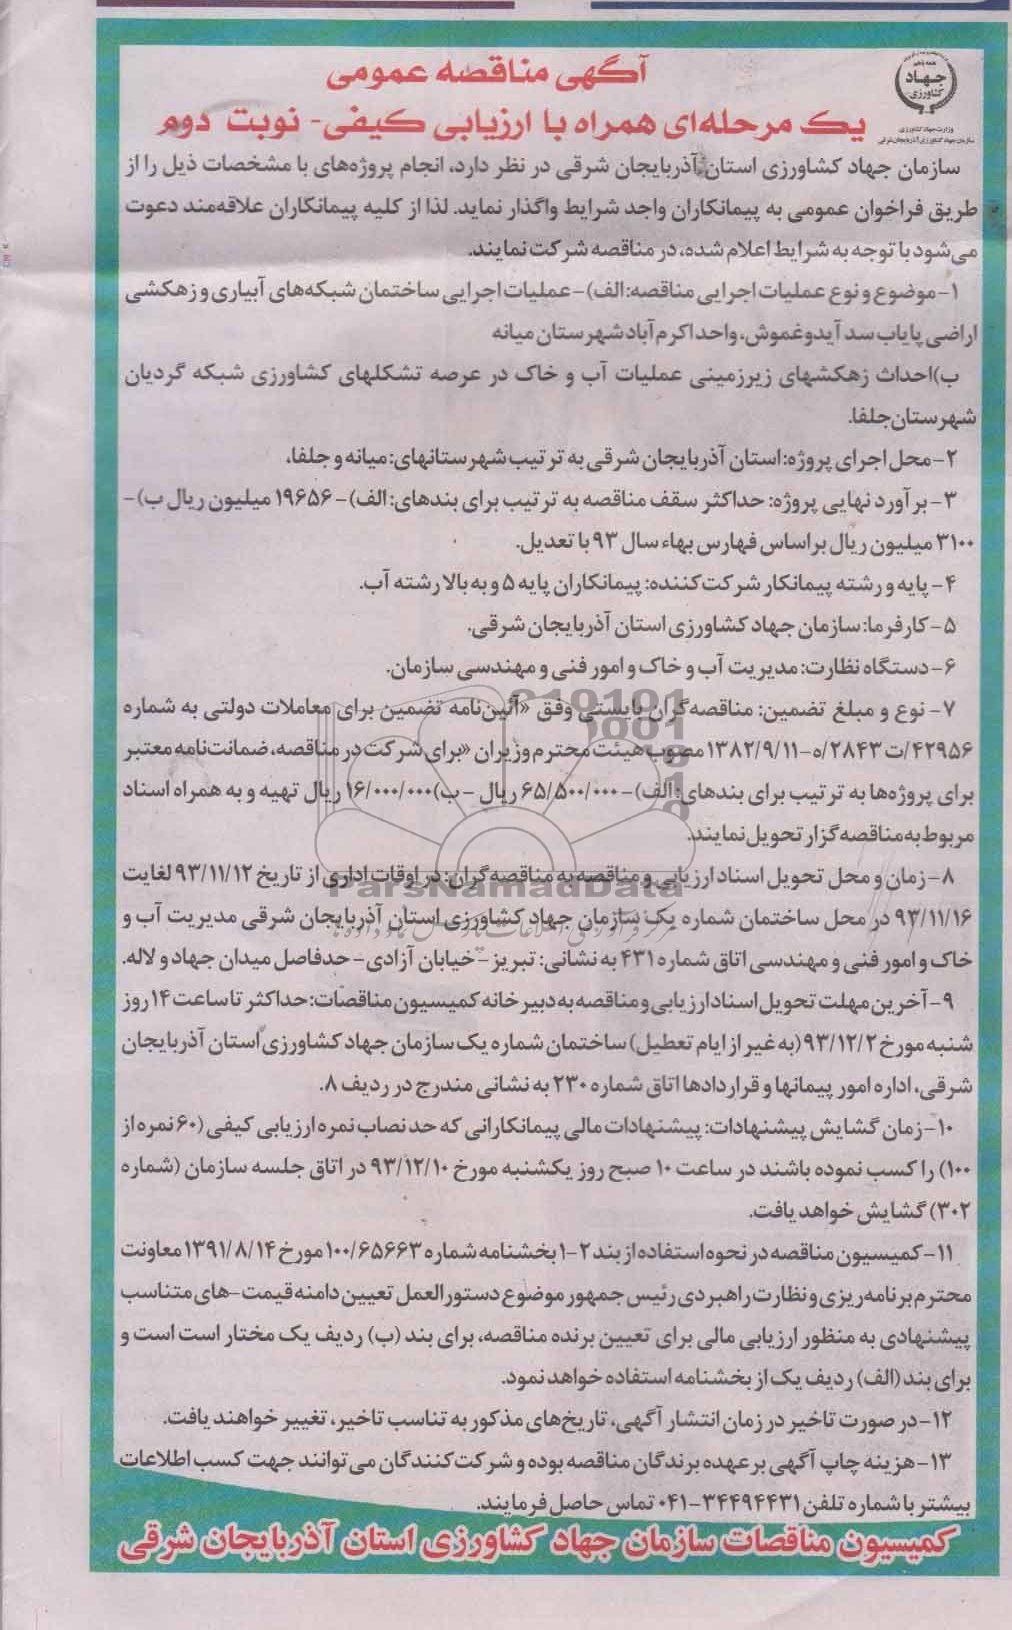 آگهی مناقصه عمومی
یک مرحله‌ای همراه با ارزیابی کیفی- نوبت دوم
جهاد
کشاورزی
وزارت جهاد کشاورزی
سازمان جهاد کشاورزی آذربایجان شرقی
سازمان جهاد کشاورزی استان آذربایجان شرقی در نظر دارد، انجام پروژه‌های با مشخصات ذیل را از
طریق فراخوان عمومی به پیمانکاران واجد شرایط واگذار نماید. لذا از کلیه پیمانکاران علاقه‌مند دعوت
می‌شود با توجه به شرایط اعلام شده، در مناقصه شرکت نمایند.
۱-موضوع و نوع عملیات اجرایی مناقصه: الف)-عملیات اجرایی ساختمان شبکه‌های آبیاری و زهکشی
اراضی پایاب سد آیدوغموش، واحد اکرم آباد شهرستان میانه
ب)احداث زهکشهای زیرزمینی عملیات آب و خاک در عرصه تشکلهای کشاورزی شبکه گردیان
شهرستان جلفا.
۲-محل اجرای پروژه: استان آذربایجان شرقی به ترتیب شهرستانهای: میانه و جلفا.
۳-برآورد نهایی پروژه: حداکثر سقف مناقصه به ترتیب برای بندهای: الف)-۱۹۶۵۶ میلیون ریال ب)-
۳۱۰۰ میلیون ریال براساس فهارس بهاء سال ۹۳ با تعدیل.
۴- پایه و رشته پیمانکار شرکت کننده: پیمانکاران پایه ۵ و به بالا رشته آب.
۵-کارفرما: سازمان جهاد کشاورزی استان آذربایجان شرقی.
۶-دستگاه نظارت: مدیریت آب و خاک و امور فنی و مهندسی سازمان.
۷- نوع و مبلغ تضمین: مناقصه‌گران بایستی وفق «آئین‌نامه تضمین برای معاملات دولتی به شماره
۴۲۹۵۶/ت۲۸۴۳/ه-۱۳۸۲/۹/۱۱ مصوب هیئت محترم وزیران «برای شرکت در مناقصه، ضمانت‌نامه معتبر
برای پروژه‌ها به ترتیب برای بندهای: الف)-۶۵/۵۰۰/۰۰۰ ریال -ب)۱۶/۰۰۰/۰۰۰ ریال تهیه و به همراه اسناد
مربوط به مناقصه‌گزار تحویل نمایند.
۸-زمان و محل تحویل اسناد ارزیابی و مناقصه به مناقصه‌گران: در اوقات اداری از تاریخ ۹۳/۱۱/۱۲ لغایت
۹۳/۱۱/۱۶ در محل ساختمان شماره یک سازمان جهاد کشاورزی استان آذربایجان شرقی مدیریت آب و
خاک و امور فنی و مهندسی اتاق شماره ۴۳۱ به نشانی: تبریز-خیابان آزادی-حدفاصل میدان جهاد و لاله.
۹-آخرین مهلت تحویل اسناد ارزیابی و مناقصه به دبیرخانه کمیسیون مناقصات: حداکثر تا ساعت ۱۴ روز
شنبه مورخ ۹۳/۱۲/۲ (به غیر از ایام تعطیل) ساختمان شماره یک سازمان جهاد کشاورزی استان آذربایجان
شرقی، اداره امور پیمانها و قراردادها اتاق شماره ۲۳۰ به نشانی مندرج در ردیف ۸.
۱۰-زمان گشایش پیشنهادات: پیشنهادات مالی پیمانکارانی که حد نصاب نمره ارزیابی کیفی (۶۰ نمره از
۱۰۰) را کسب نموده باشند در ساعت ۱۰ صبح روز یکشنبه مورخ ۹۳/۱۲/۱۰ در اتاق جلسه سازمان (شماره
۳۰۲) گشایش خواهد یافت.
۱۱-کمیسیون مناقصه در نحوه استفاده از بند ۲-۱ بخشنامه شماره ۱۰۰/۶۵۶۶۳ مورخ ۱۳۹۱/۸/۱۴ معاونت
محترم برنامه‌ریزی و نظارت راهبردی رئیس جمهور موضوع دستورالعمل تعیین دامنه قیمت-های متناسب
پیشنهادی به منظور ارزیابی مالی برای تعیین برنده مناقصه، برای بند (ب) ردیف یک مختار است است و
برای بند (الف) ردیف یک از بخشنامه استفاده خواهد نمود.
۱۲-در صورت تاخیر در زمان انتشار آگهی، تاریخ‌های مذکور به تناسب تاخیر، تغییر خواهند یافت.
۱۳-هزینه چاپ آگهی بر عهده برندگان مناقصه بوده و شرکت کنندگان می‌توانند جهت کسب اطلاعات
بیشتر با شماره تلفن ۳۴۴۹۴۴۳۱-۰۴۱ تماس حاصل فرمایند.
کمیسیون مناقصات سازمان جهاد کشاورزی استان آذربایجان شرقی
ParsNamadData